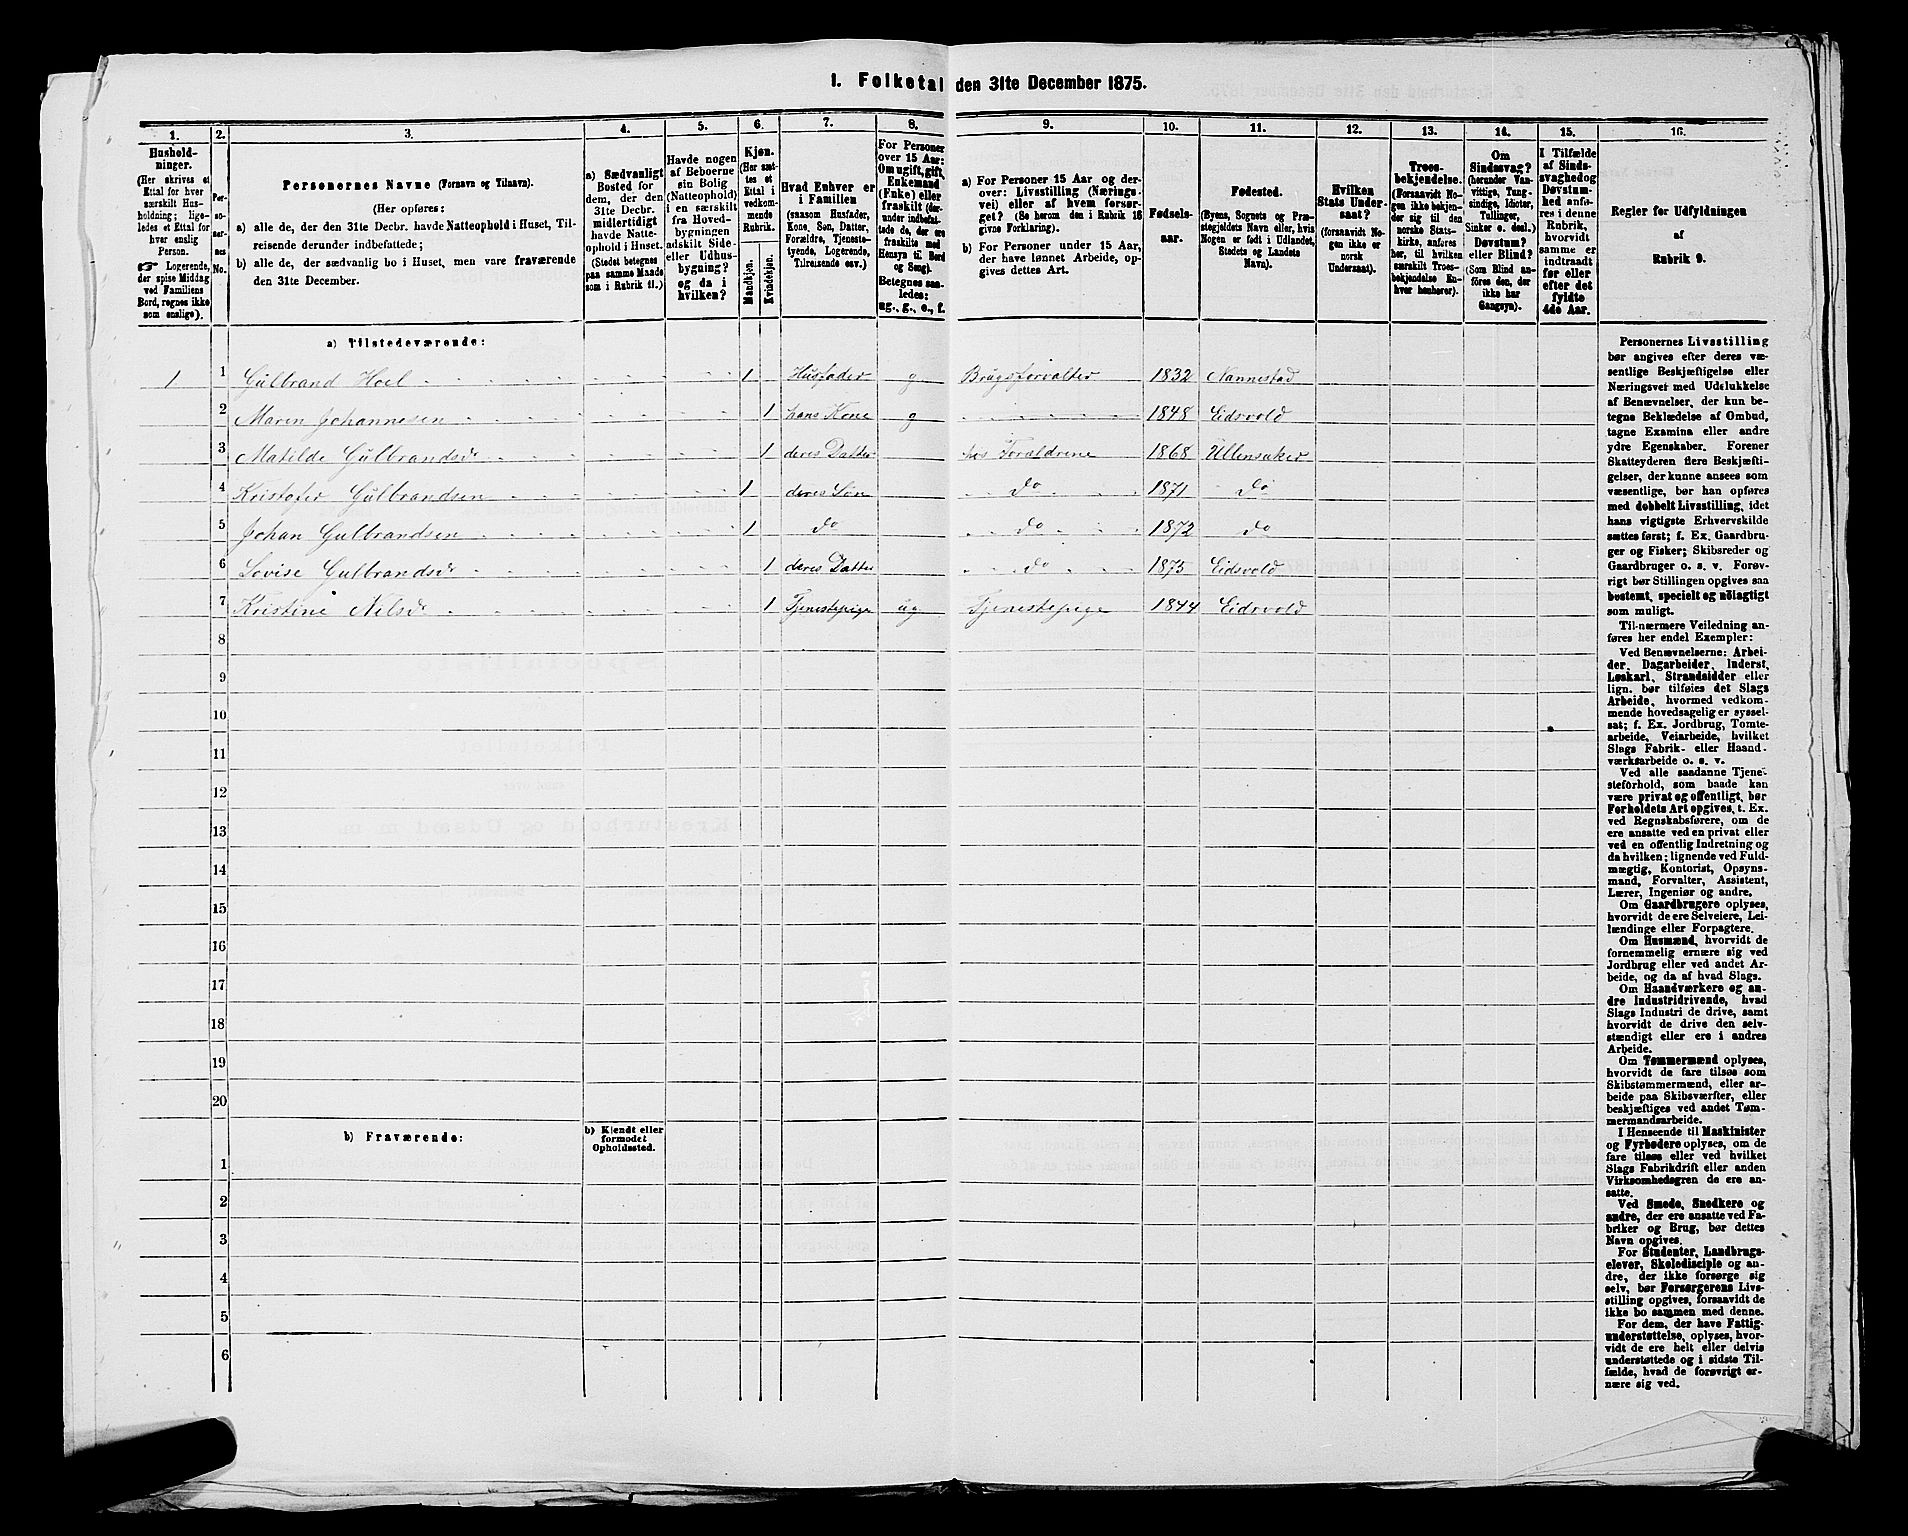 1. Folketal den 31te December 1875.
1. 2. 3. 4. 5. 6. 7. 8. 9. 10. 11. 12. 13. 14. 15. 16.
Hushold-
ninger.
(Her skrives et
Ettal for hver
særskilt Hus-
holdning; lige-
ledes et Ettal for
hver enslig
Person.
Logerende,
der spise Middag
ved Familiens
Bord, regnes ikke
som enslige).
Per-
so-
ner-
nes
No.
Personernes Navne (Fornavn og Tilnavn).
(Her opføres:
a) alle de, der den 31te Decbr. havde Natteophold i Huset, Til-
reisende derunder indbefattede;
b) alle de, der sædvanlig bo i Huset, men vare fraværende
den 31te December.
a) Sædvanligt
Bosted for
dem, der den
31te Decbr.
midlertidigt
havde Natte-
ophold i Huset.
(Stedet betegnes
paa samme Maade
som i Rubrik 11.)
Havde nogen
af Beboerne
sin Bolig
(Natteophold)
i en særskilt
fra Hoved-
bygningen
adskilt Side-
eller Udhus-
bygning?
og da i
hvilken?
Kjøn.
(Her sæt-
tes et
Ettal i
vedkom-
mende
Rubrik.
Mandkjøn.
Kvindekjøn.
Hvad Enhver er
i Familien
(saasom Husfader,
Kone, Søn, Datter,
Forældre, Tjeneste-
tyende, Logerende,
Tilreisende osv.)
For Personer
over 15 Aar:
Om ugift, gift,
Enkemand
(Enke) eller
fraskilt (der-
under indbefat-
tede de, der ere
fraskilte med
Hensyn til Bord
og Seng).
Betegnes saa-
ledes:
ug., g., e., f.
a) For Personer 15 Aar og der-
over: Livsstilling (Nærings-
vei) eller af hvem forsør-
get? (Se herom den i Rubrik 16
givne Forklaring).
b) For Personer under 15 Aar,
der have lønnet Arbeide, op-
gives dettes Art.
Fødsels-
aar.
Fødested.
(Byens, Sognets og Præ-
stegjeldets Navn eller, hvis
Nogen er født i Udlandet,
Stedets og Landets
Navn).
Hvilken
Stats Under-
saat?
(forsaavidt No-
gen ikke er
norsk
Undersaat).
Troes-
bekjendelse.
(Forsaavidt No-
gen ikke bekjen-
der sig til den
norske Stats-
kirke, anføres
her, til hvilken
særskilt Troes-
bekjendelse En-
hver henhører).
Om
Sindssvag?
(herunder Van-
vittige, Tung-
sindige, Idioter,
Tullinger,
Sinker o. desl.)
Døvstum?
eller Blind?
(Som Blind an-
føres den, der
ikke har
Gangsyn).
I Tilfælde
af Sinds-
svaghed og
Døvstum-
hed anfø-
res i denne
Rubrik,
hvorvidt
samme er
indtraadt
før eller
efter det
fyldte
4de Aar.
Regler for Udfyldningen
af
Rubrik 9.
a) Tilstedeværende:
1 1 Gulbrand Hoel 1 Husfader g Brugsforvalter 1832 Nannestad
2 Maren Johannesen 1 hans Kone g 1848 Eidsvold
3 Matilde Gulbrandsdr 1 deres Datter hos Foraldrene 1868 Ullensaker
4 Kristofer Gulbrandsen 1 deres Søn do 1871 do
5 Johan Gulbrandsen 1 do do 1872 do
6 Lovise Gulbrandsdr 1 deres Datter do 1875 Eidsvold
7 Kristine Nilsdr 1 Tjenestepige ug Tjenestepige 1844 Eidsvold
8
9
10
11
12
13
14
15
16
17
18
19
20
b) Fraværende:
b) Kjendt eller
formodet
Opholdssted.
1
2
3
4
5
6
Personernes Livsstilling
bør angives efter deres væ-
sentlige Beskjæftigelse eller
Næringsvei med Udelukkelse
af Benævnelser, der kun be-
tegne Beklædelse af Ombud,
tagne Examina eller andre
ydre Egenskaber. Forener
Skatteyderen flere Beskjæfti-
gelser, der kunne ansees som
væsentlige, bør han opføres
med dobbelt Livsstilling, idet
hans vigtigste Erhvervskilde
sættes først; f. Ex. Gaardbru-
ger og Fisker; Skibsreder og
Gaardbruger o. s. v. Forøv-
rigt bør Stillingen opgives saa
bestemt, specielt og nøiagtigt
som muligt.
Til nærmere Veiledning an-
føres her endel Exempler:
Ved Benævnelserne: Arbei-
der, Dagarbeider, Inderst,
Løskarl, Strandsidder eller
lign. bør tilføies det Slags
Arbeide, hvormed vedkom-
mende hovedsagelig er syssel-
sat; f. Ex. Jordbrug, Tomte-
arbeide, Veiarbeide, hvilket
Slags Fabrik- eller Haand-
værksarbeide o. s. v.
Ved alle saadanne Tjene-
steforhold, som baade kan
være privat og offentligt, bør
Forholdets Art opgives, t. Ex.
ved Regnskabsførere, om de
ere ansatte ved en privat eller
ved en offentlig Indretning og
da hvilken; lignende ved Fuld-
mægtig, Kontorist, Opsyns-
mand, Forvalter, Assistent,
Lærer, Ingeniør og andre.
Om Gaardbrugere oplyses,
hvorvidt de ere Selveiere, Lei-
lændinge eller Forpagtere.
Om Husmænd, hvorvidt de
fornemmelig ernære sig ved
Jordbrug eller ved andet Ar-
beide, og da af hvad Slags.
Om Haandværkere og an-
dre Industridrivende, hvad
Slags Industri de drive, samt
hvorvidt de drive den selv-
stændigt eller ere i andres
Arbeide.
Om Tømmermænd oplyses,
hvorvidt de fare tilsøs som
Skibstømmermænd, eller ar-
beide paa Skibsværfter, eller
beskjæftiges ved andet Tøm-
mermandsarbeide.
I Henseende til Maskinister
og Fyrbødere oplyses, om de
fare tilsøs eller ved hvilket
Slags Fabrikdrift eller anden
Virksomhedsgren de ere an-
satte.
Ved Smede, Snedkere og
andre, der ere ansatte ved Fa-
briker og Brug, bør dettes
Navn opgives.
For Studenter, Landbrugs-
elever, Skoledisciple og an-
dre, der ikke forsørge sig
selv, bør Forsørgerens Livs-
stilling opgives, forsaavidt de
ikke bo sammen med denne.
For dem, der have Fattig-
understøttelse, oplyses, hvor-
vidt de ere helt eller delvis
understøttede og i sidste Til-
fælde, hvad de forøvrigt er-
nære sig ved.